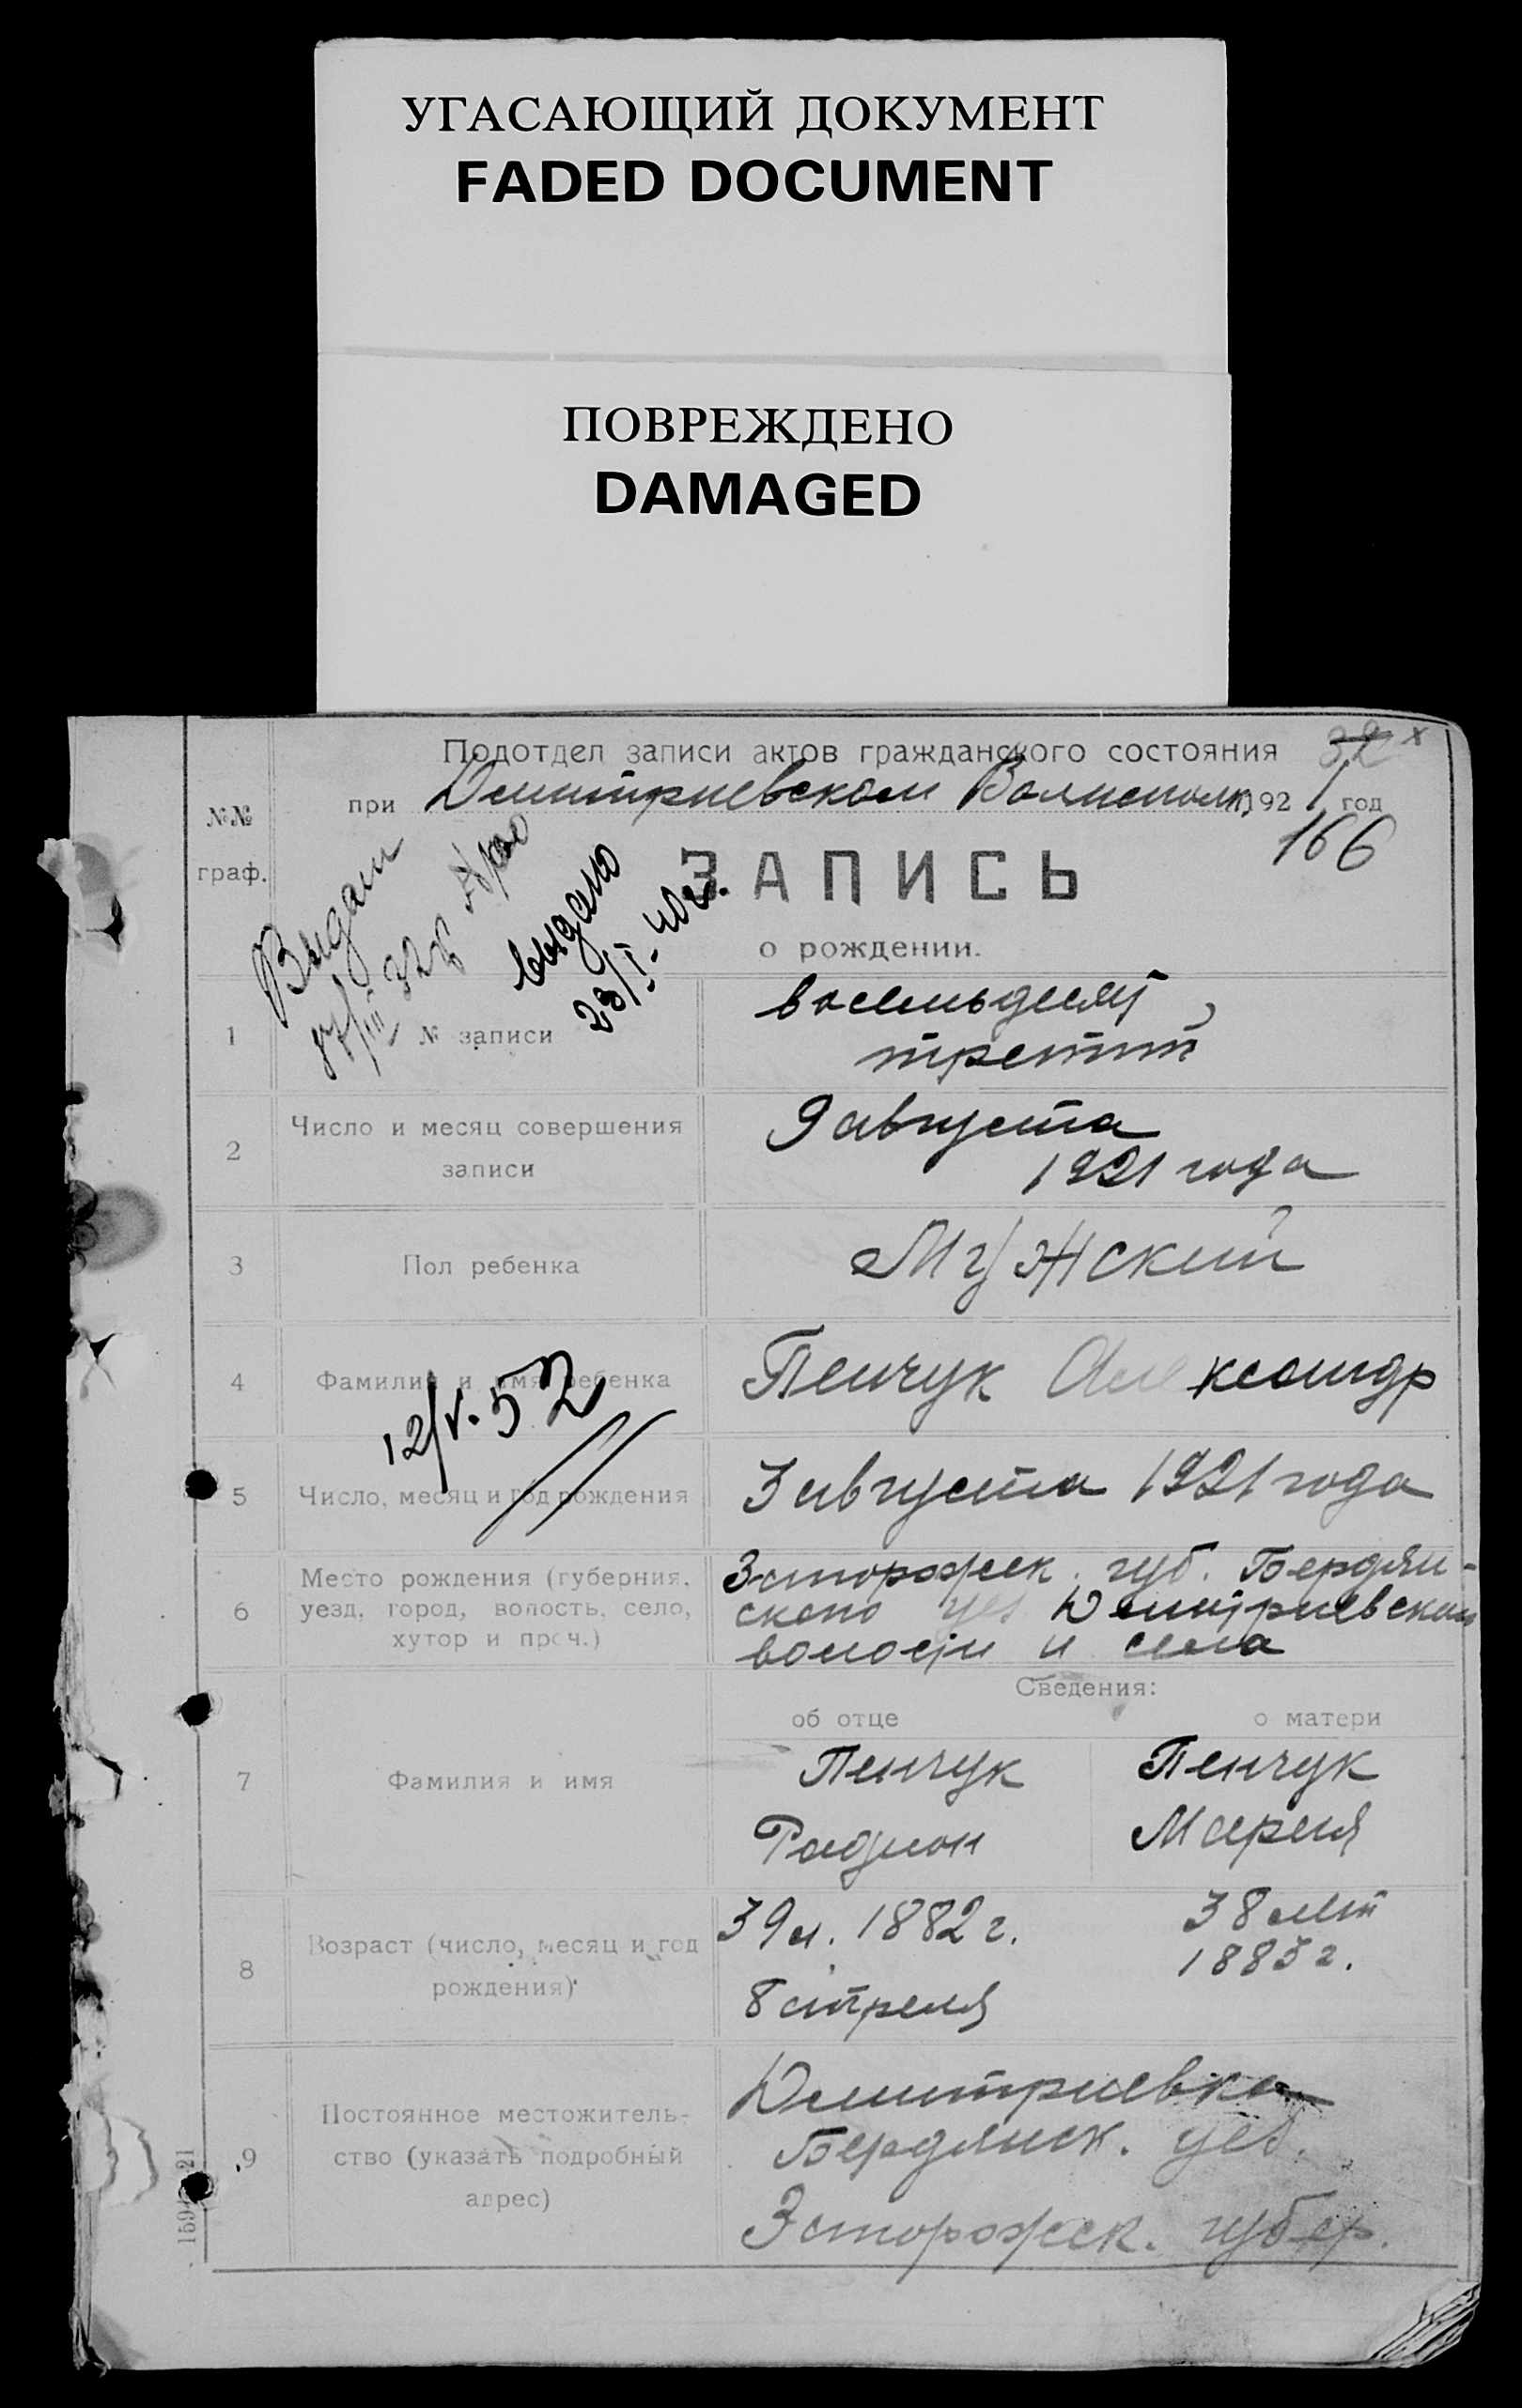 УГАСАЮЩИЙ ДОКУМЕНТ
FADED DOCUMENT
ПОВРЕЖДЕНО
DAMAGED
Подотдел записи актов гражданского состояния 32 x
при Дмитриевском Волисполк. 1921 год
№№ граф.
166
ЗАПИСЬ
о рождении.
Выдан
выдано
23/I-40г.
1 № записи восемьдесят третий
2 Число и месяц совершения записи 9 августа 1921 года
3 Пол ребенка Мужский
4 Фамилия и имя ребенка Пенчук Александр
12/V.52
5 Число, месяц и год рождения 3 августа 1921 года
6 Место рождения (губерния, уезд, город, волость, село, хутор и проч.) Запорожск. губ. Бердян-
ского уез Дмитриевской
волости и села
Сведения:
об отце о матери
7 Фамилия и имя
Пенчук Пенчук
Радион Мария
8 Возраст (число, месяц и год рождения)
39 л. 1882 г. 38 лет
1883 г.
8 апреля
9 Постоянное местожитель-
ство (указать подробный
адрес)
Дмитриевка
Бердянск. уез.
Запорожск. губер.